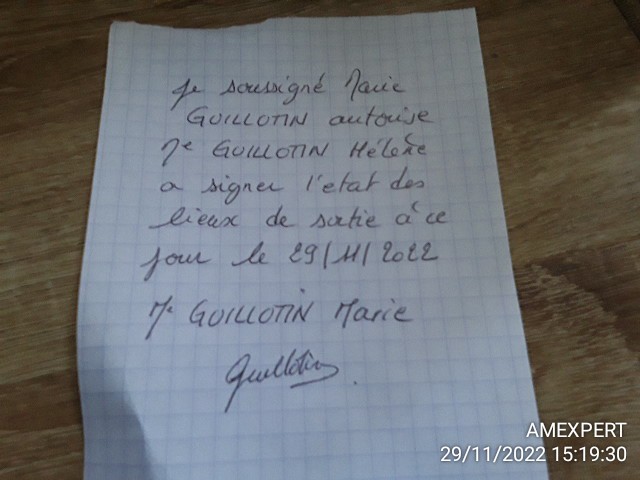 Je soussigné Marie
GUILLOTIN autorise
Me GUILLOTIN Hélène
a signer l'etat des
lieux de sortie à ce
jour le 29/11/2022
Me GUILLOTIN Marie
Guillotin
AMEXPERT
29/11/2022 15:19:30